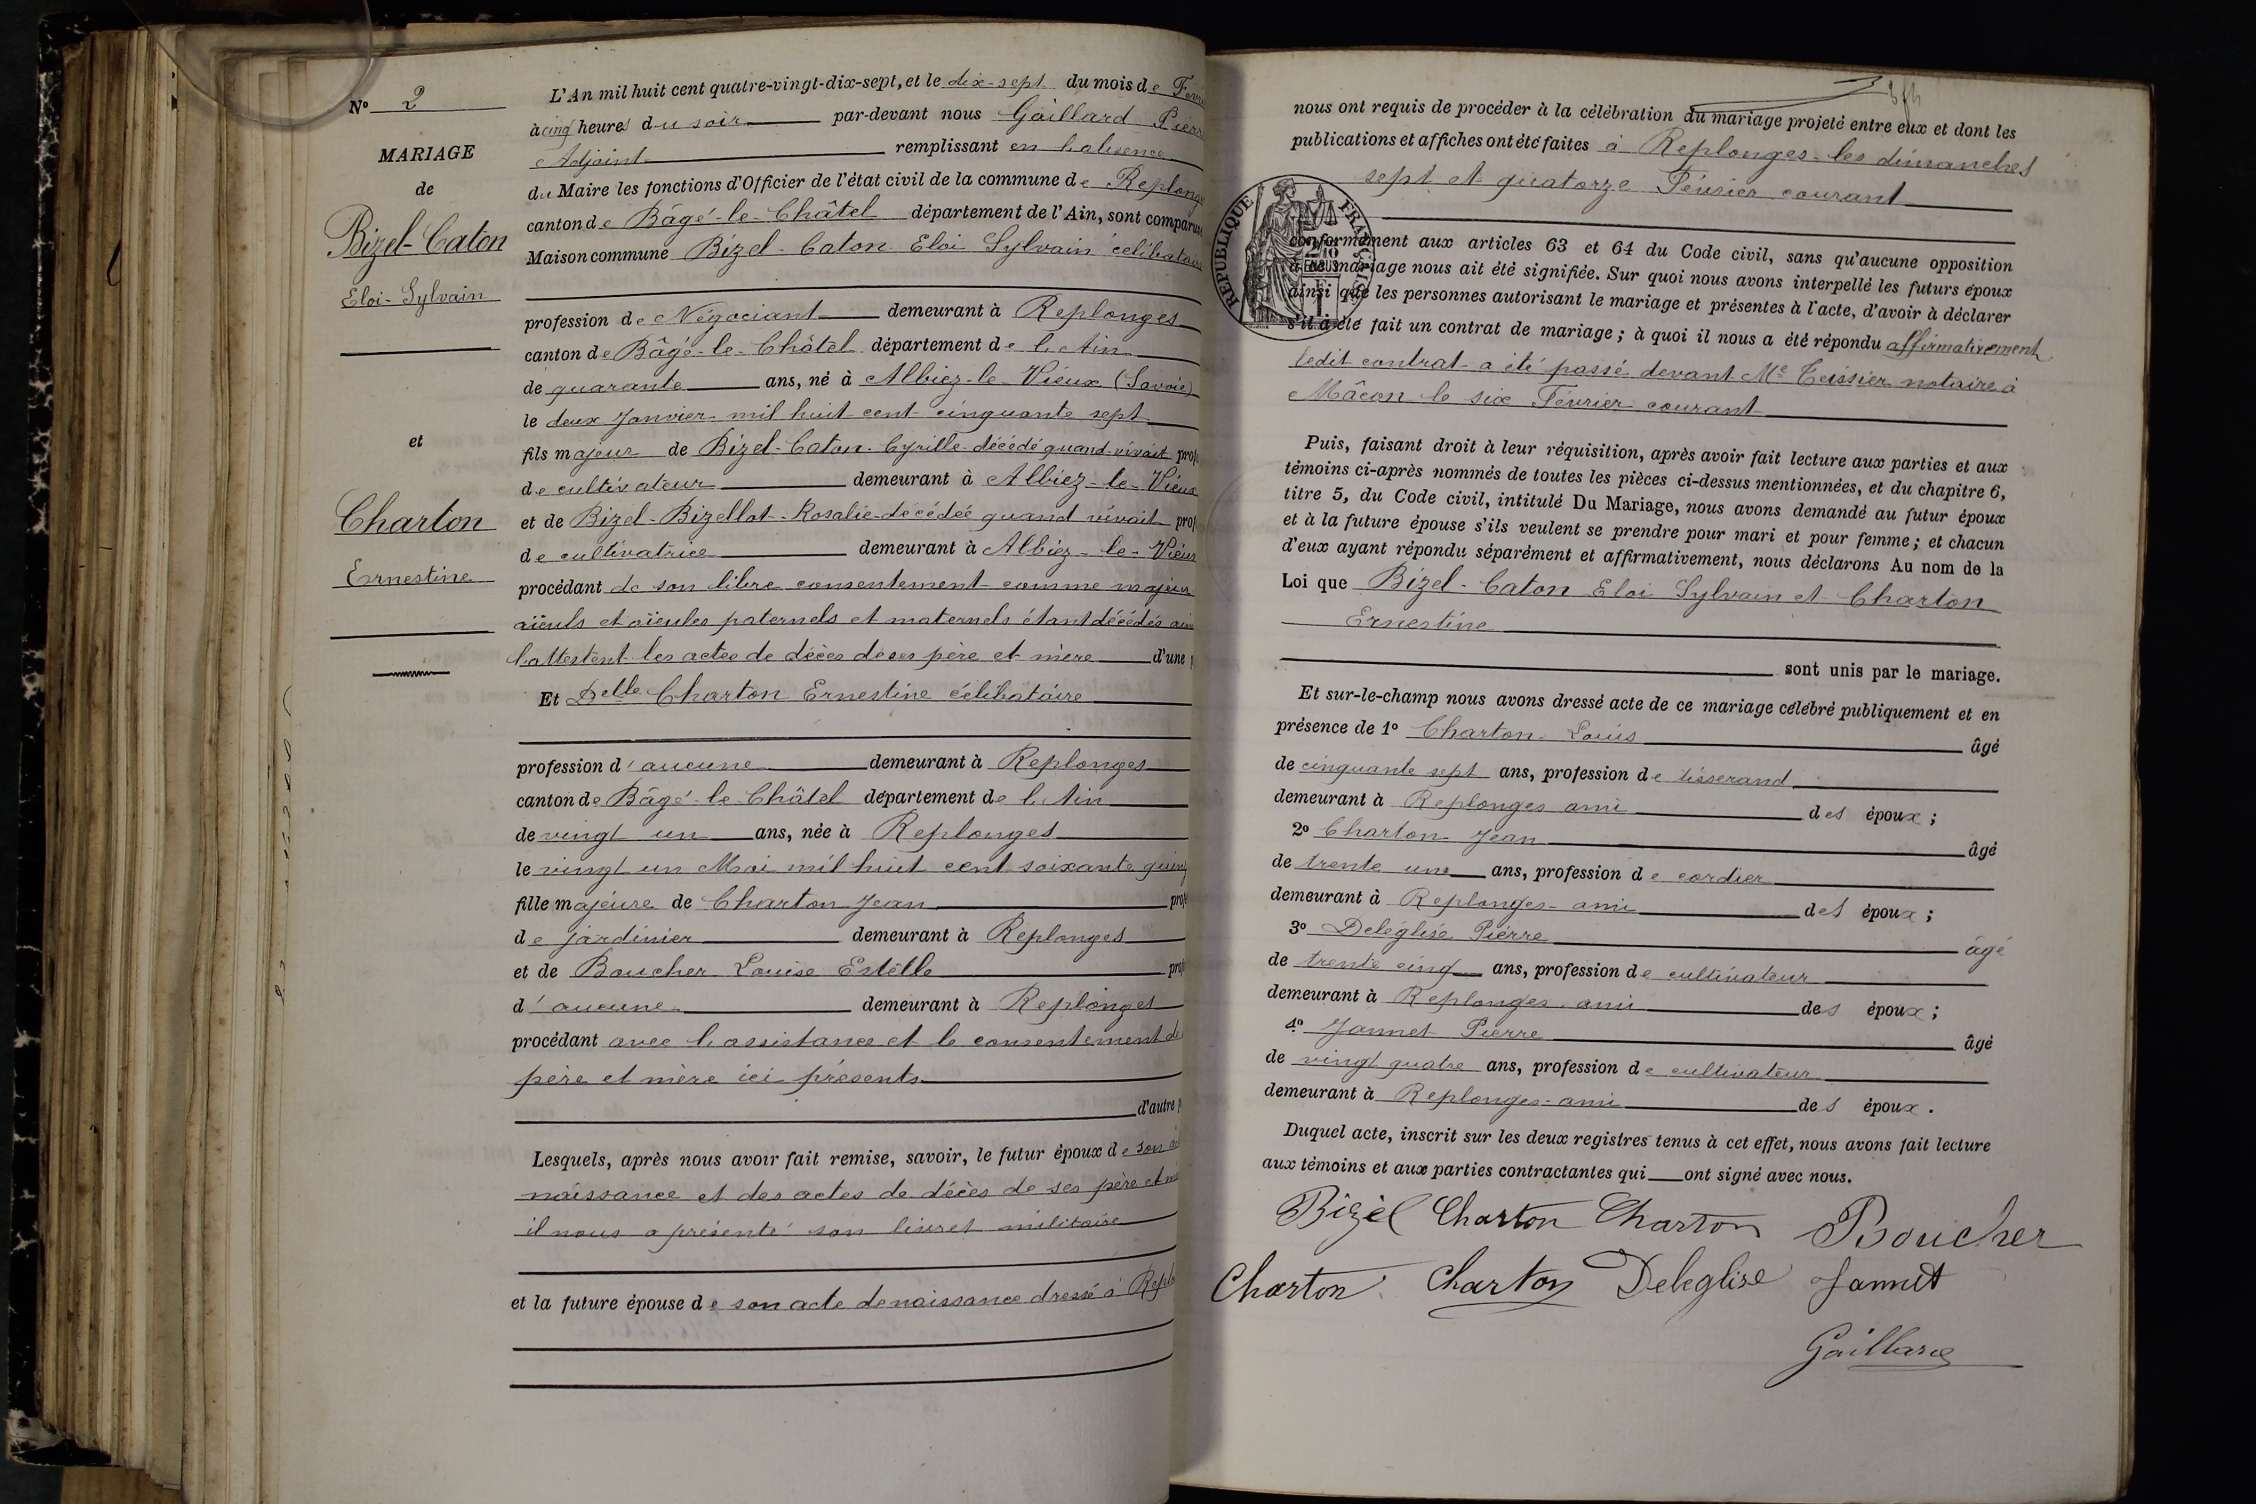 N° 2
MARIAGE
de
Bizel-Caton
Eloi-Sylvain
et
Charton
Ernestine
L'An mil huit cent quatre-vingt-dix-sept, et le dix-sept du mois de
à cinq heures du soir par-devant nous Gaillard
Adjoint remplissant en l'absence
du Maire les fonctions d'Officier de l'état civil de la commune de
canton de Bâgé-le-Châtel département de l'Ain, sont
Maison commune Bizel-Caton Eloi Sylvain
profession de Négociant demeurant à Replonges
canton de Bâgé-le-Châtel département de l'Ain
de quarante ans, né à Albiez-le-Vieux (Savoie)
le deux Janvier mil huit cent cinquante sept
fils majeur de Bizel-Caton Cyrille décédé quand vivait
de cultivateur demeurant à Albiez-le-Vieux
et de Bizel-Bizellot Rosalie décédée quand vivait
de cultivatrice demeurant à Albiez-le-Vieux
procédant de son libre consentement comme majeur
aïeuls et aïeules paternels et maternels étant décédés
l'attestent les actes de décès de ses père et mère d'une
Et Delle Charton Ernestine célibataire
profession d'aucune demeurant à Replonges
canton de Bâgé-le-Châtel département de l'Ain
de vingt un ans, née à Replonges
le vingt un Mai mil huit cent soixante
fille majeure de Charton Jean
de jardinier demeurant à Replonges
et de Boucher Louise Estelle
d'aucune demeurant à Replonges
procédant avec l'assistance et le consentement de
père et mère ici présents
d'autre
Lesquels, après nous avoir fait remise, savoir, le futur époux de son
naissance et des actes de décès de ses père et
il nous a présenté son livret militaire
et la future épouse de son acte de naissance dressé à
nous ont requis de procéder à la célébration du mariage projeté entre eux et dont les
publications et affiches ont été faites à Replonges les dimanches
sept et quatorze Février courant
RÉPUBLIQUE FRANÇAISE
conformément aux articles 63 et 64 du Code civil, sans qu'aucune opposition
à ce mariage nous ait été signifiée. Sur quoi nous avons interpellé les futurs époux
ainsi que les personnes autorisant le mariage et présentes à l'acte, d'avoir à déclarer
s'il a été fait un contrat de mariage ; à quoi il nous a été répondu affirmativement
ledit contrat a été passé devant Me Teissier notaire à
Mâcon le six Février courant
Puis, faisant droit à leur réquisition, après avoir fait lecture aux parties et aux
témoins ci-après nommés de toutes les pièces ci-dessus mentionnées, et du chapitre 6,
titre 5, du Code civil, intitulé Du Mariage, nous avons demandé au futur époux
et à la future épouse s'ils veulent se prendre pour mari et pour femme ; et chacun
d'eux ayant répondu séparément et affirmativement, nous déclarons Au nom de la
Loi que Bizel-Caton Eloi Sylvain et Charton
Ernestine
sont unis par le mariage.
Et sur-le-champ nous avons dressé acte de ce mariage célébré publiquement et en
présence de 1° Charton Louis âgé
de cinquante sept ans, profession de tisserand
demeurant à Replonges ami des époux ;
2° Charton Jean âgé
de trente un ans, profession de cordier
demeurant à Replonges ami des époux ;
3° Deléglise Pierre âgé
de trente cinq ans, profession de cultivateur
demeurant à Replonges ami des époux ;
4° Jannet Pierre âgé
de vingt quatre ans, profession de cultivateur
demeurant à Replonges ami des époux.
Duquel acte, inscrit sur les deux registres tenus à cet effet, nous avons fait lecture
aux témoins et aux parties contractantes qui ont signé avec nous.
Bizel Charton Charton Boucher
Charton Charton Deleglise Jannet
Gaillard